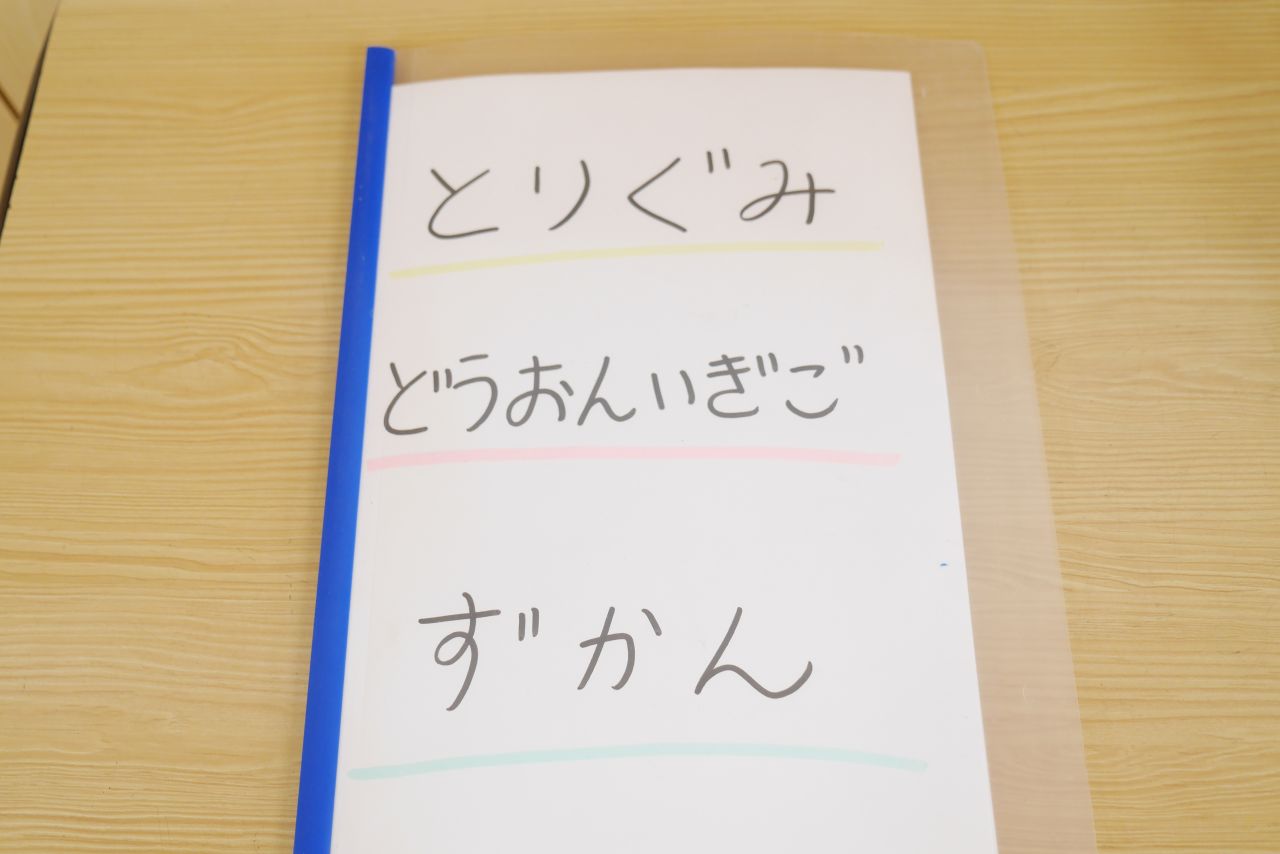 とりぐみ
どうおんいぎご
ずかん